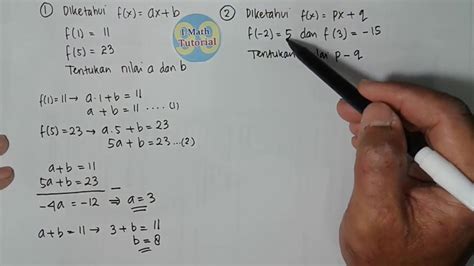 ① Diketahui f(x) = ax + b
f(1) = 11
f(5) = 23
Tentukan nilai a dan b
f(1) = 11 → a·1 + b = 11
a + b = 11 ....(1)
f(5) = 23 → a·5 + b = 23
5a + b = 23 ...(2)
a + b = 11
5a + b = 23
-4a = -12 ⇒ a = 3
a + b = 11 → 3 + b = 11
b = 8
1 Math
Tutorial
② Diketahui f(x) = px + q
f(-2) = 5 dan f(3) = -15
Tentukan p - q